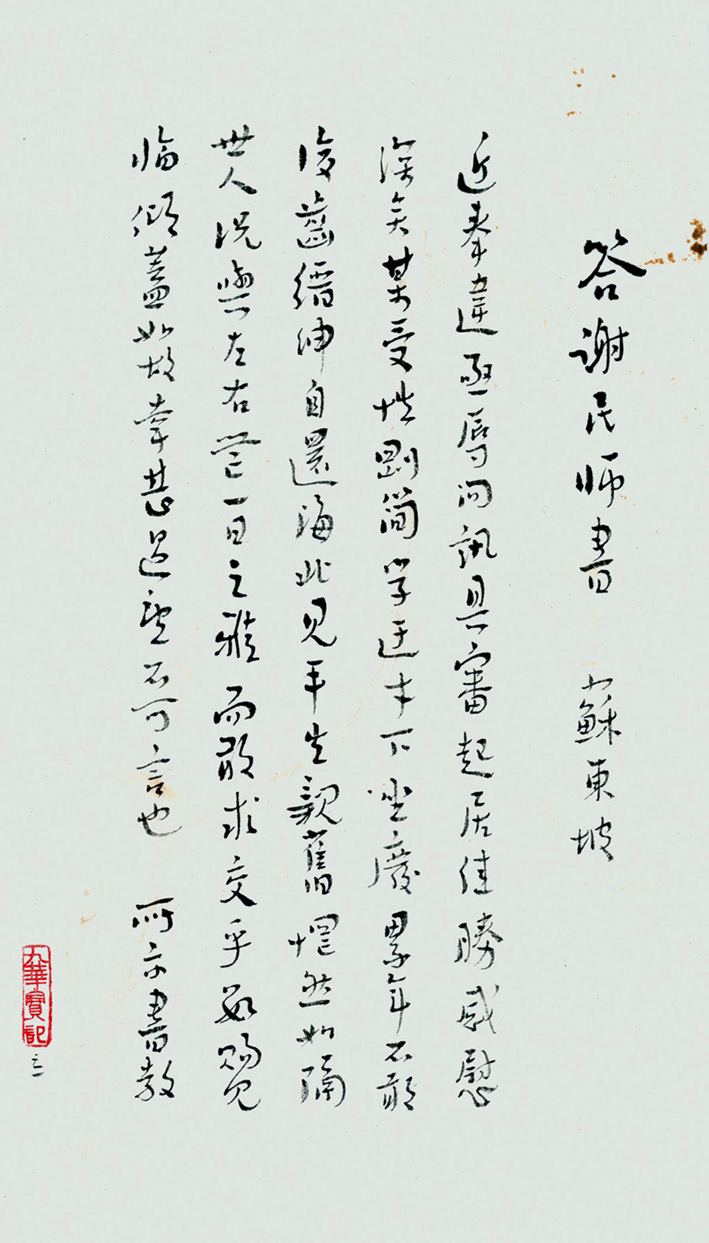 答謝民師書 蘇東坡
近奉違亟辱问訊具審起居佳勝感慰
深矣某受性剛简学迂才下坐廢累年不敢
復齒縉紳自還海北見平生親舊惘然如隔
世人況與左右無一日之雅而敢求交乎數賜見
臨傾蓋如故幸甚過望不可言也 所示書教
九華寶記